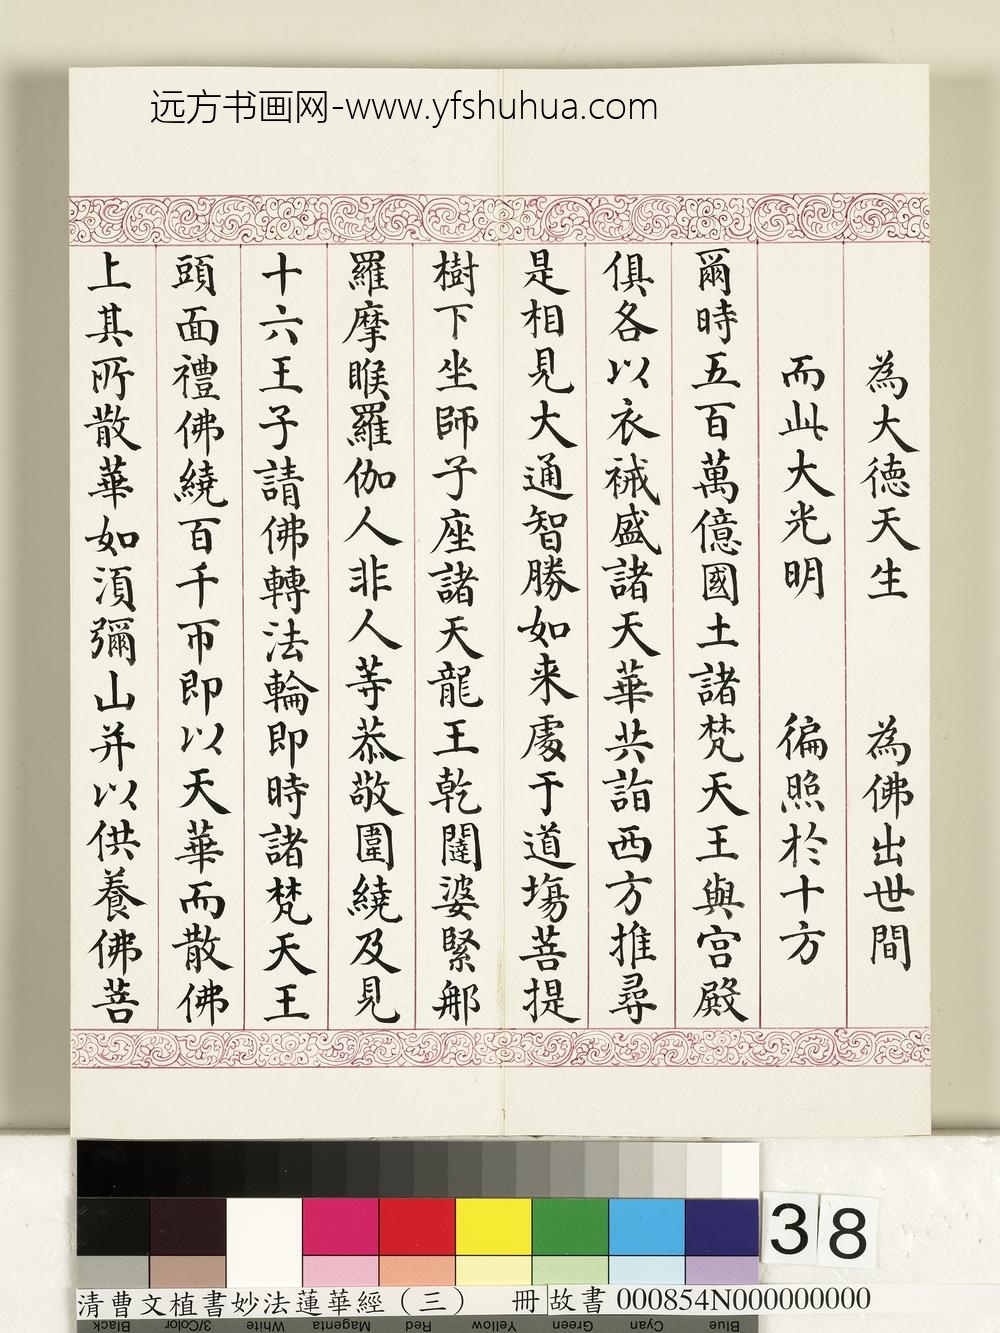 远方书画网-www.yfshuhua.com
為大德天生　為佛出世間
而此大光明　徧照於十方
爾時五百萬億國土諸梵天王與宮殿
俱各以衣祴盛諸天華共詣西方推尋
是相見大通智勝如来處于道場菩提
樹下坐師子座諸天龍王乾闥婆緊那
羅摩睺羅伽人非人等恭敬圍繞及見
十六王子請佛轉法輪即時諸梵天王
頭面禮佛繞百千帀即以天華而散佛
上其所散華如須彌山并以供養佛菩
38
清曹文植書妙法蓮華經（三）　冊 故書 000854N000000000
Black 3/Color White Magenta Red Yellow Green Cyan Blue